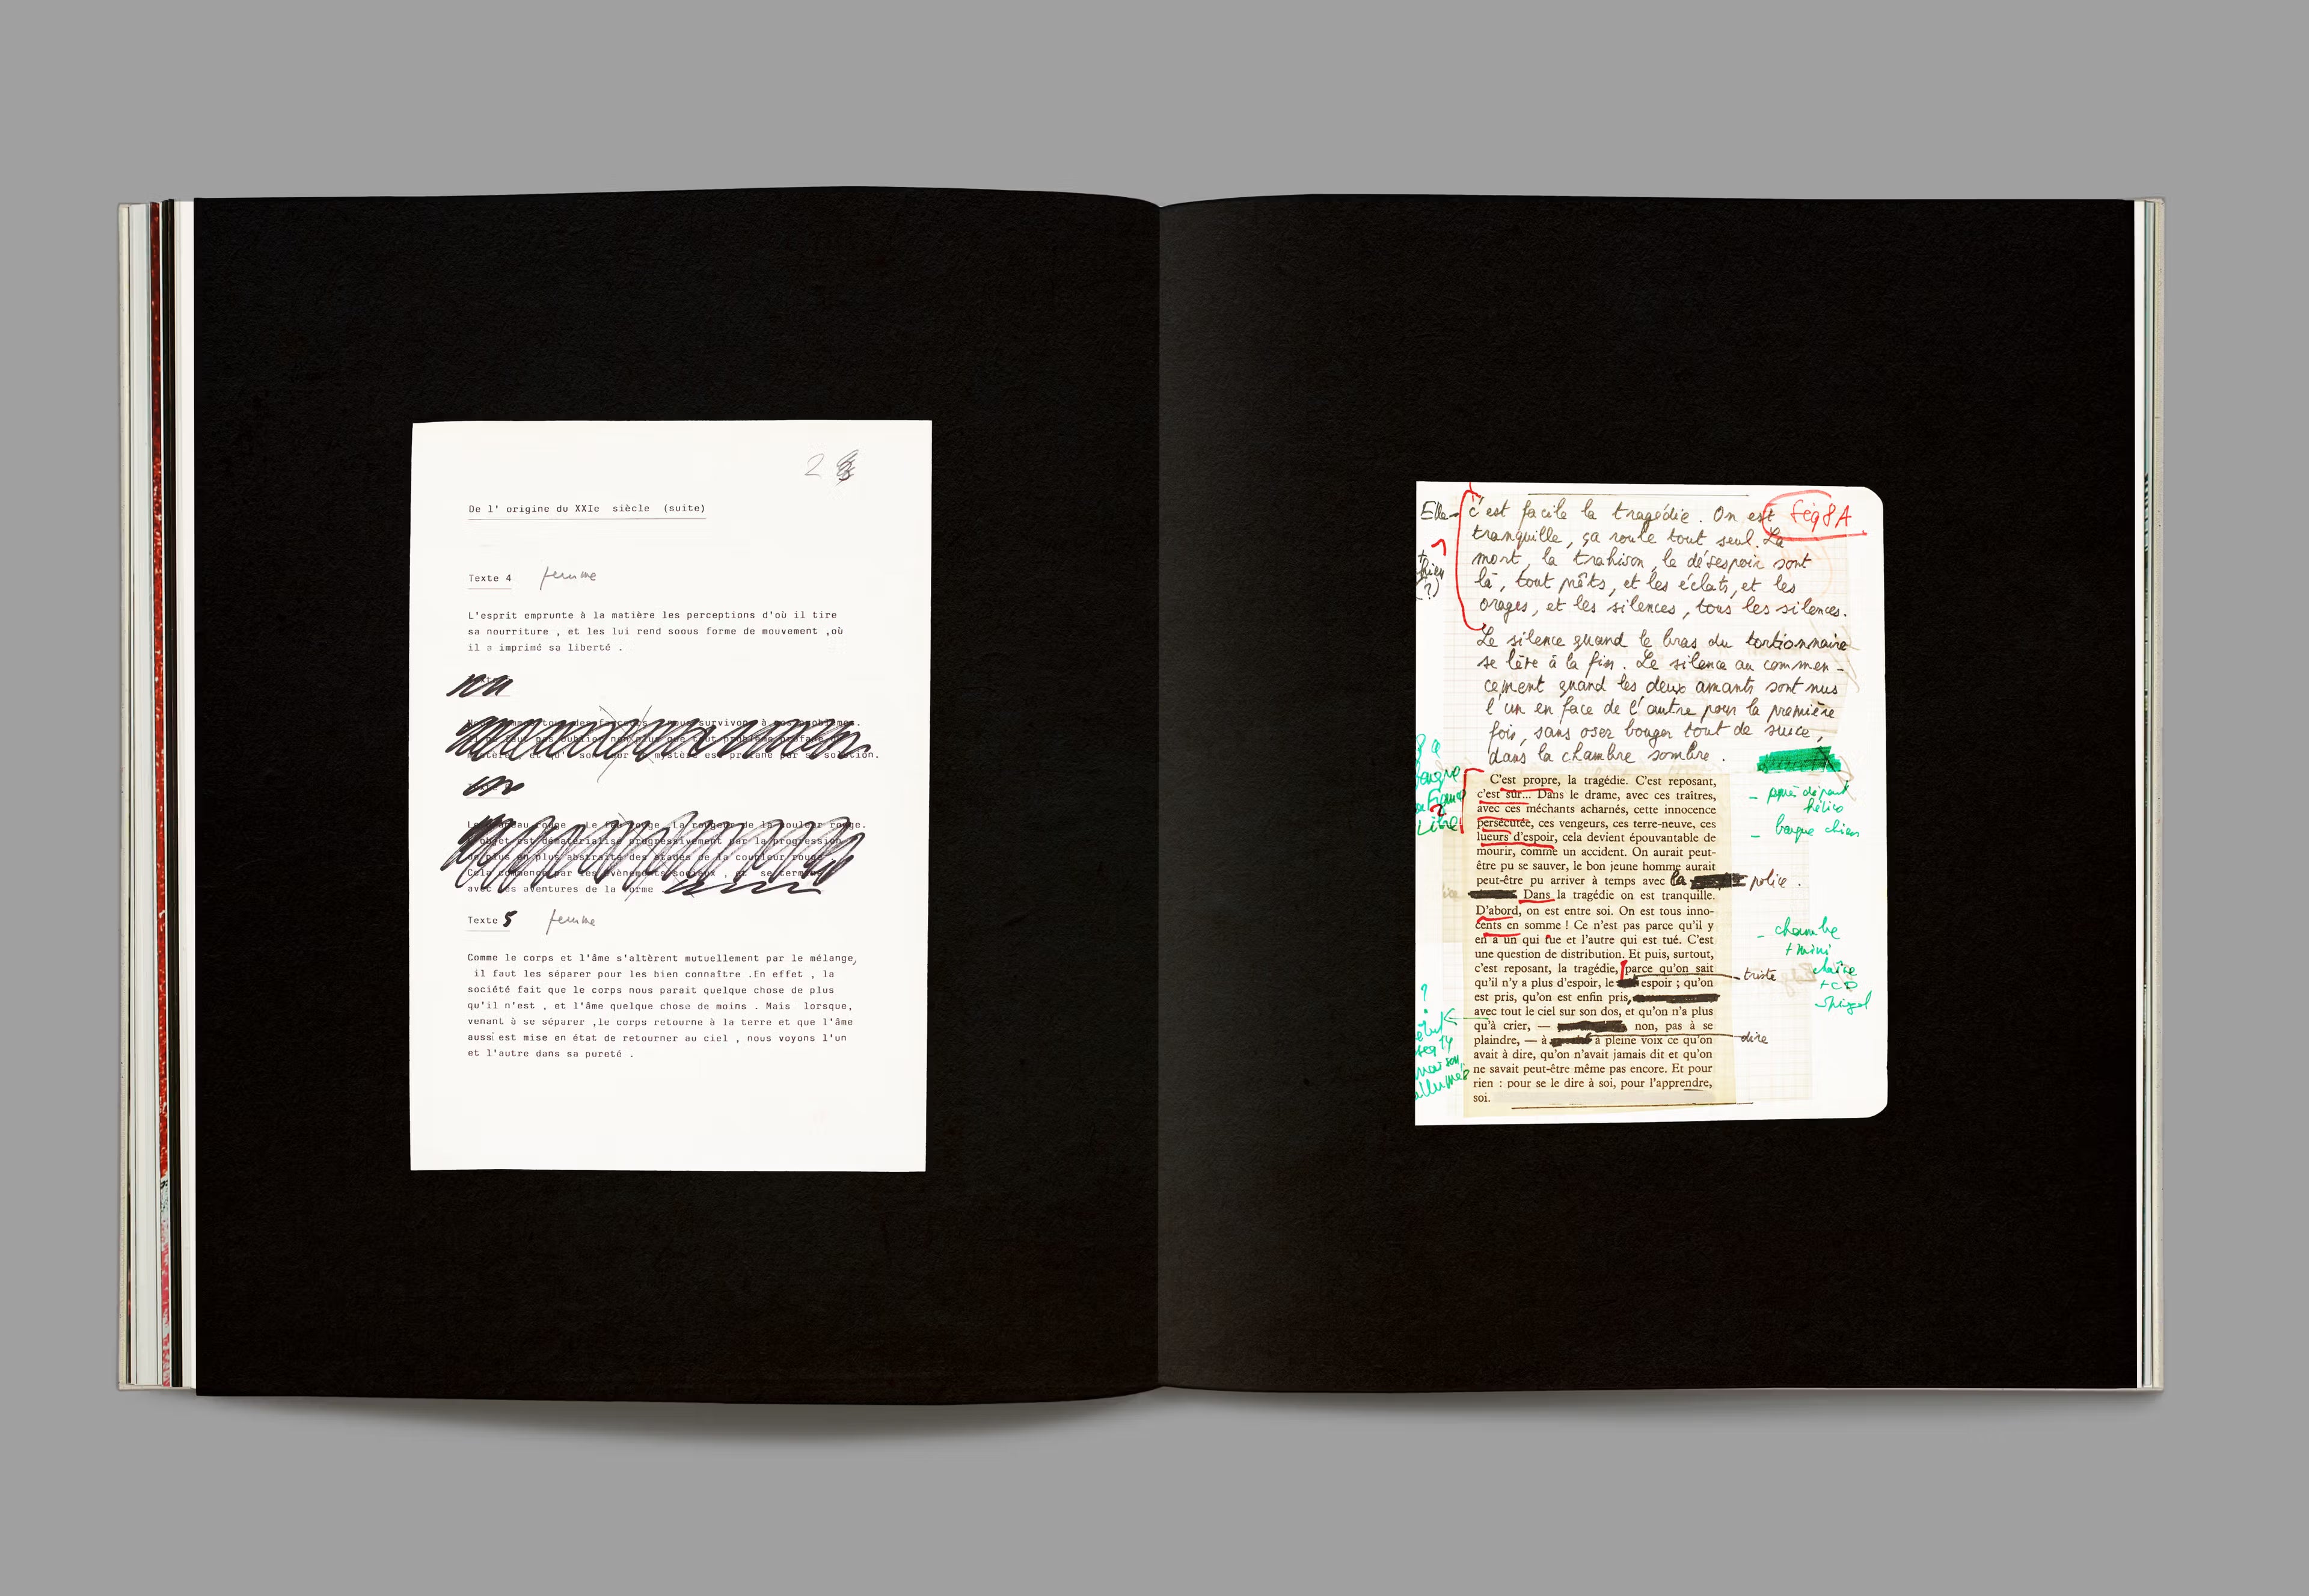 2
De l' origine du XXIe siècle (suite)
Texte 4 femme
L'esprit emprunte à la matière les perceptions d'où il tire
sa nourriture , et les lui rend soous forme de mouvement ,où
il a imprimé sa liberté .
tous des survivons à nos problèmes.
oublier non plus que tout problème profane
mystère, et qu' son tour le mystère est profané par sa solution.
rouge . Le rouge . La rougeur de la couleur rouge.
L'objet est dématérialisé progressivement par la progression
de plus en plus abstraite des stades de la couleur rouge
Cela commence par les évènements sociaux , et se termine
avec les aventures de la forme
Texte 5 femme
Comme le corps et l'âme s'altèrent mutuellement par le mélange,
il faut les séparer pour les bien connaître .En effet , la
société fait que le corps nous parait quelque chose de plus
qu'il n'est , et l'âme quelque chose de moins . Mais lorsque,
venant à se séparer ,le corps retourne à la terre et que l'âme
aussi est mise en état de retourner au ciel , nous voyons l'un
et l'autre dans sa pureté .
Séq 8A
Elle
c'est facile la tragédie. On est
tranquille, ça roule tout seul. La
mort, la trahison, le désespoir sont
là, tout prêts, et les éclats, et les
orages, et les silences, tous les silences.
Le silence quand le bras du tortionnaire
se lève à la fin. Le silence au commen-
cement quand les deux amants sont nus
l'un en face de l'autre pour la première
fois, sans oser bouger tout de suite,
dans la chambre sombre.
C'est propre, la tragédie. C'est reposant,
c'est sûr... Dans le drame, avec ces traîtres,
avec ces méchants acharnés, cette innocence
persécutée, ces vengeurs, ces terre-neuve, ces
lueurs d'espoir, cela devient épouvantable de
mourir, comme un accident. On aurait peut-
être pu se sauver, le bon jeune homme aurait
peut-être pu arriver à temps avec la police.
Dans la tragédie on est tranquille.
D'abord, on est entre soi. On est tous inno-
cents en somme ! Ce n'est pas parce qu'il y
en a un qui tue et l'autre qui est tué. C'est
une question de distribution. Et puis, surtout,
c'est reposant, la tragédie, parce qu'on sait
qu'il n'y a plus d'espoir, le espoir ; qu'on
triste
est pris, qu'on est enfin pris,
avec tout le ciel sur son dos, et qu'on n'a plus
qu'à crier, — non, pas à se
plaindre, — à à pleine voix ce qu'on
dire
avait à dire, qu'on n'avait jamais dit et qu'on
ne savait peut-être même pas encore. Et pour
rien : pour se le dire à soi, pour l'apprendre,
soi.
- après départ
hélico
- barque chien
- chambre
+ mini
chaîne
+ CD
Spiegel
?
seq 14
maison
allumée